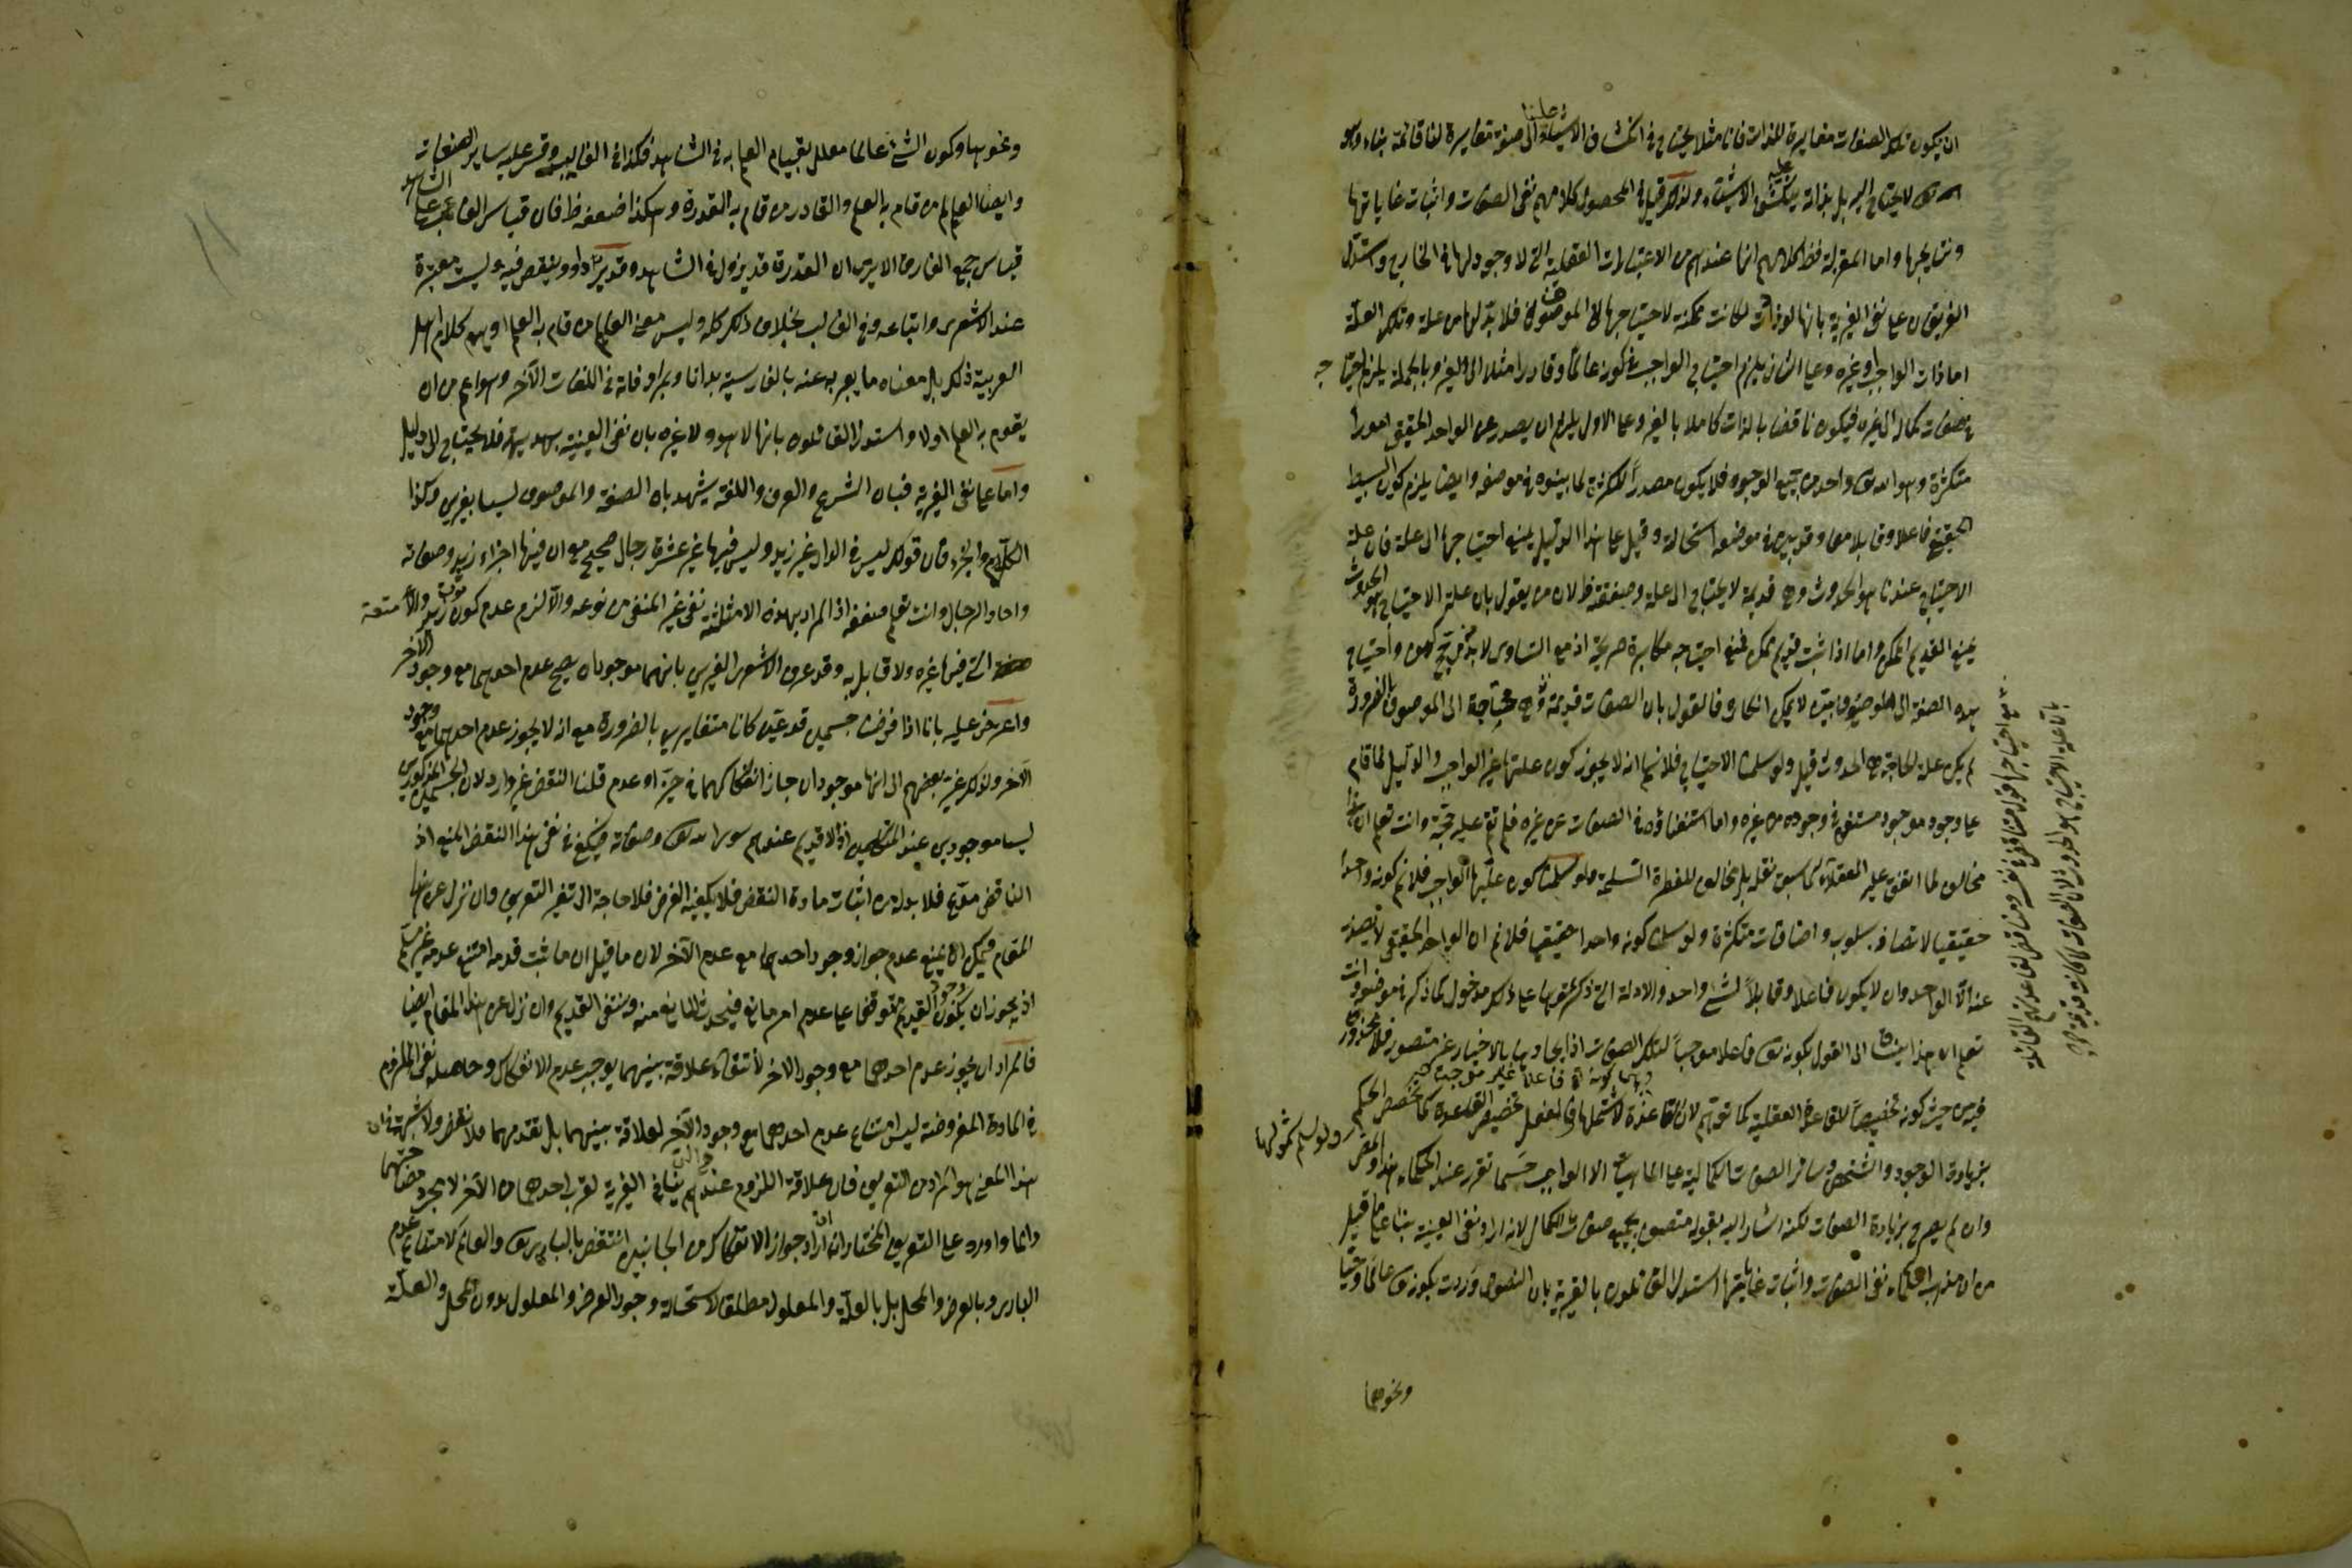 ان يكون تلك الصفات مغايرة للذات فانا مثلا يحتاج في انكشاف الاشياء علينا الى صفة مغايرة لنا قائمة بنا وهو
تعالى لا يحتاج اليه بل بذاته ينكشف الاشياء عليه ولذلك قيل محصول كلامهم نفي الصفات واثبات غاياتها
ونتايجها واما المعتزلة فظ كلامهم انها عندهم من الاعتبارات العقلية التي لا وجود لها في الخارج واستدل
الفريقان على نفي الغيرية بانها لو زادت لكانت ممكنة لاحتياجها الى الموصوف فلا بد لها من علة وتلك العلة
اما ذات الواجب او غيره وعلى الثاني يلزم احتياج الواجب في كونه عالما وقادرا مثلا الى الغير وبالجملة يلزم احتياجه
في صفات كماله الى غيره فيكون ناقصا بالذات كاملا بالغير وعلى الاول يلزم ان يصدر عن الواحد الحقيقي امورا
متكثرة وهو الله تعالى واحد من جميع الوجوه فلا يكون مصدرا للكثرة لما بينوه في موضعه وايضا يلزم كون البسيط
الحقيقي فاعلا وقابلا معا وقد بين في موضعه استحالته وقيل على هذا الدليل يمنع احتياجها الى علة فان علة
الاحتياج عندنا هو الحدوث وهي قديمة لا يحتاج الى علة وضعفه ظ لان من يقول بان علة الاحتياج هو الحدوث
يمنع القديم الممكن واما اذا ثبت قديم ممكن فمنع احتياجه مكابرة صريحة اذ مع التساوي لا بد من مرجح واحتياج
هذه الصفة الى الموصوف بين لا يمكن انكاره فالقول بان الصفات قديمة وهي محتاجة الى الموصوف بالضرورة
لم يكن علة الحاجة هي الحدوث قيل ولو سلمنا الاحتياج فلا نسلم انه لا يجوز كون علتها غير الواجب والدليل انما قام
على وجود موجود مستغن في وجوده عن غيره واما استغناؤه في الصفات عن غيره فلم تقم عليه حجة وانت تعلم ان هذا
مخالف لما اتفق عليه العقلاء كما سبق نقله بل مخالف للفطرة السليمة ولو سلمنا كون علتها الواجب فلا نم كونه واحدا
حقيقيا لاتصافه بسلوب واضافات متكثرة ولو سلمنا كونه واحدا حقيقيا فلا نم ان الواحد الحقيقي لا يصدر
عنه الا الواحد وان لا يكون فاعلا وقابلا لشئ واحد والادلة التي ذكرتموها على ذلك مدخول كما ذكر في موضعه وانت
تعلم ان هذا ينساق الى القول بكونه تعالى فاعلا موجبا لتلك الصفات اذ ايجادها بالاختيار غير متصور فلا محذور
فيه من حيث كونه تخصيصا للقاعدة العقلية كما توهم لان القاعدة لا شتملها فالعقل تخصيص القاعدة كما تخصص الحكم
بزيادة الوجود والتشخص وسائر الصفات الكمالية على الماهيات الا الواجب حسبما تقرر عند الحكماء هذا والمص
وان لم يصرح بزيادة الصفات لكنه اشار اليه بقوله متصف بجميع صفات الكمال لانه اراد نفي العينية بناء على ما قيل
من ان مذهب الحكماء نفي الصفات واثبات غاياتها استدل القائلون بالغيرية بان النصوص وردت بكونه تعالى عالما وحيا
ونحوهما
ولو سلم شمولها
ونحوهما وكون الشئ عالما معلل بقيام العلم به في الشاهد فكذا في الغايب وقس عليه ساير الصفات
وايضا العالم من قام به العلم والقادر من قام به القدرة وهكذا ضعفه ظ فان قياس الغائب على الشاهد
قياس مع الفارق الا يرى ان القدرة قد يزول في الشاهد وقد يزداد وينقص فيه وليست مؤثرة
عند الاشعري واتباعه وفي الغائب بخلاف ذلك كله وليس معنى العالم من قام به العلم وان اوهم كلام اهل
العربية ذلك بل معناه ما يعبر عنه بالفارسية بدانا وبمرادفاته في اللغات الآخر وهو اعم من ان
يقوم به العلم اولا واستدل القائلون بانها لا هو ولا غيره بان نفي العينية بديهية فلا يحتاج الى دليل
واما على نفي الغيرية فبان الشرع والعرف واللغة يشهد بان الصفة والموصوف ليسا بغيرين وكذا
الكل والجزء فان قولك ليس في الدار غير زيد وليس فيها غير عشرة رجال صحيح مع ان فيها اجزاء زيد وصفاته
واحاد الرجال وانت تعلم ضعفه اذ المراد بهذه الامثلة نفي غير المنفي من نوعه والا لزم عدم كون ثوب زيد والامتعة
التي فيها غيره ولا قابل به وقد عرف الاشعري الغيرين بانهما موجودان يصح عدم احدهما مع وجود الآخر
واعترض عليه بانا اذا فرضنا جسمين قديمين كانا متغايرين بالضرورة مع انه لا يجوز عدم احدهما مع وجود
الآخر ولذلك غيره بعضهم الى انهما موجودان جاز انفكاكهما في حيز او عدم قلنا النقض غير وارد لان الجسمين المذكورين
ليسا موجودين عند المتكلمين اذ لا قديم عندهم سوى الله تعالى وصفاته فيكفي في نفي هذا النقض المنع اذ
الناقض مدع فلا بد له من اثبات مادة النقض فلا يكفيه الفرض فلا حاجة الى تغيير التعريف وان نزل عن هذا
المقام فيمكن ان يمنع عدم جواز وجود احدهما مع عدم الآخر لان ما قيل ان ما ثبت قدمه امتنع عدمه غير مسلم
اذ يجوز ان يكون وجود القديم متوقفا على عدم امر مانع فيحدث المانع منه وينتفي القديم وان نزل عن هذا المقام ايضا
فالمراد ان يجوز عدم احدهما مع وجود الاخر لانتفاء علاقة بينهما يوجب عدم الانفكاك وحاصله نفي اللزوم
في المادة المفروضة ليس امتناع عدم احدهما مع وجود الآخر لعلاقة بينهما بل لقدمهما فلا نقض ولا شبهة في ان
هذا المعنى هو المراد من التعريف فان علاقة اللزوم عندهم ينافي الغيرية لقرب احدهما من الآخر
وانما اورد على التعريف المختار انه ان اراد جواز الانفكاك من الجانبين انتقض بالباري تعالى والعالم لامتناع عدم
الباري وبالعرض والمحل بل بالعلة والمعلول مطلقا لاستحالة وجود العرض والمعلول بدون المحل والعلة